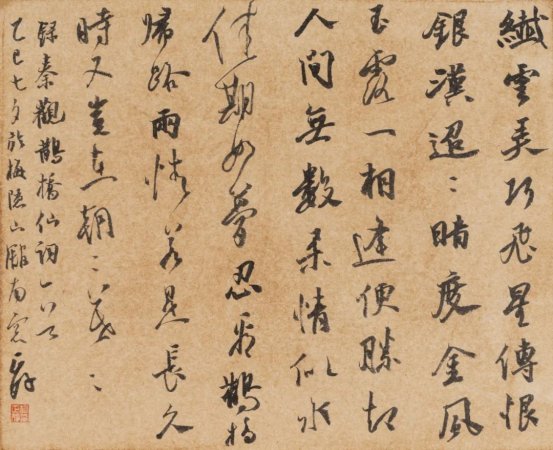 纖雲弄巧飛星傳恨
銀漢迢〻暗度金風
玉露一相逢便勝却
人間無數柔情似水
佳期如夢忍顧鵲橋
歸路兩情若是長久
時又豈在朝〻暮〻
錄秦觀鵲橋仙詞
乙巳七夕於梅隱山館南窗